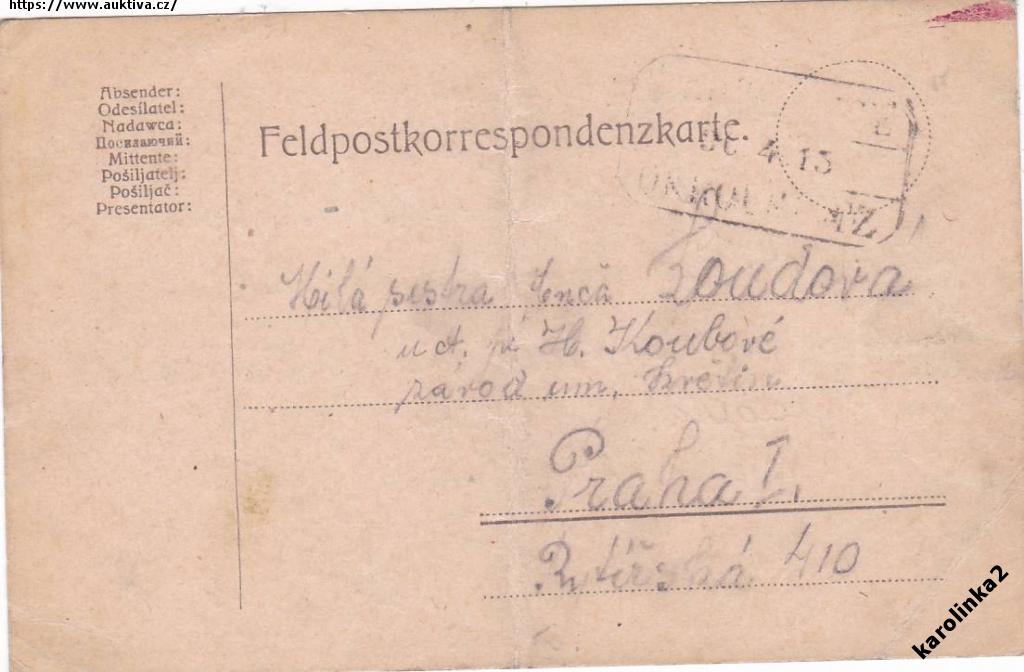 https://www.auktiva.cz/
Absender:
Odesílatel:
Nadawca:
Посилаючий:
Mittente:
Pošiljatelj:
Pošiljač:
Presentator:
Feldpostkorrespondenzkarte.
4 15
Milá sestra Enča Zoudova
uct. p. H. Koubové
závod um. květin
Praha I.
Rytířská 410
karolinka2